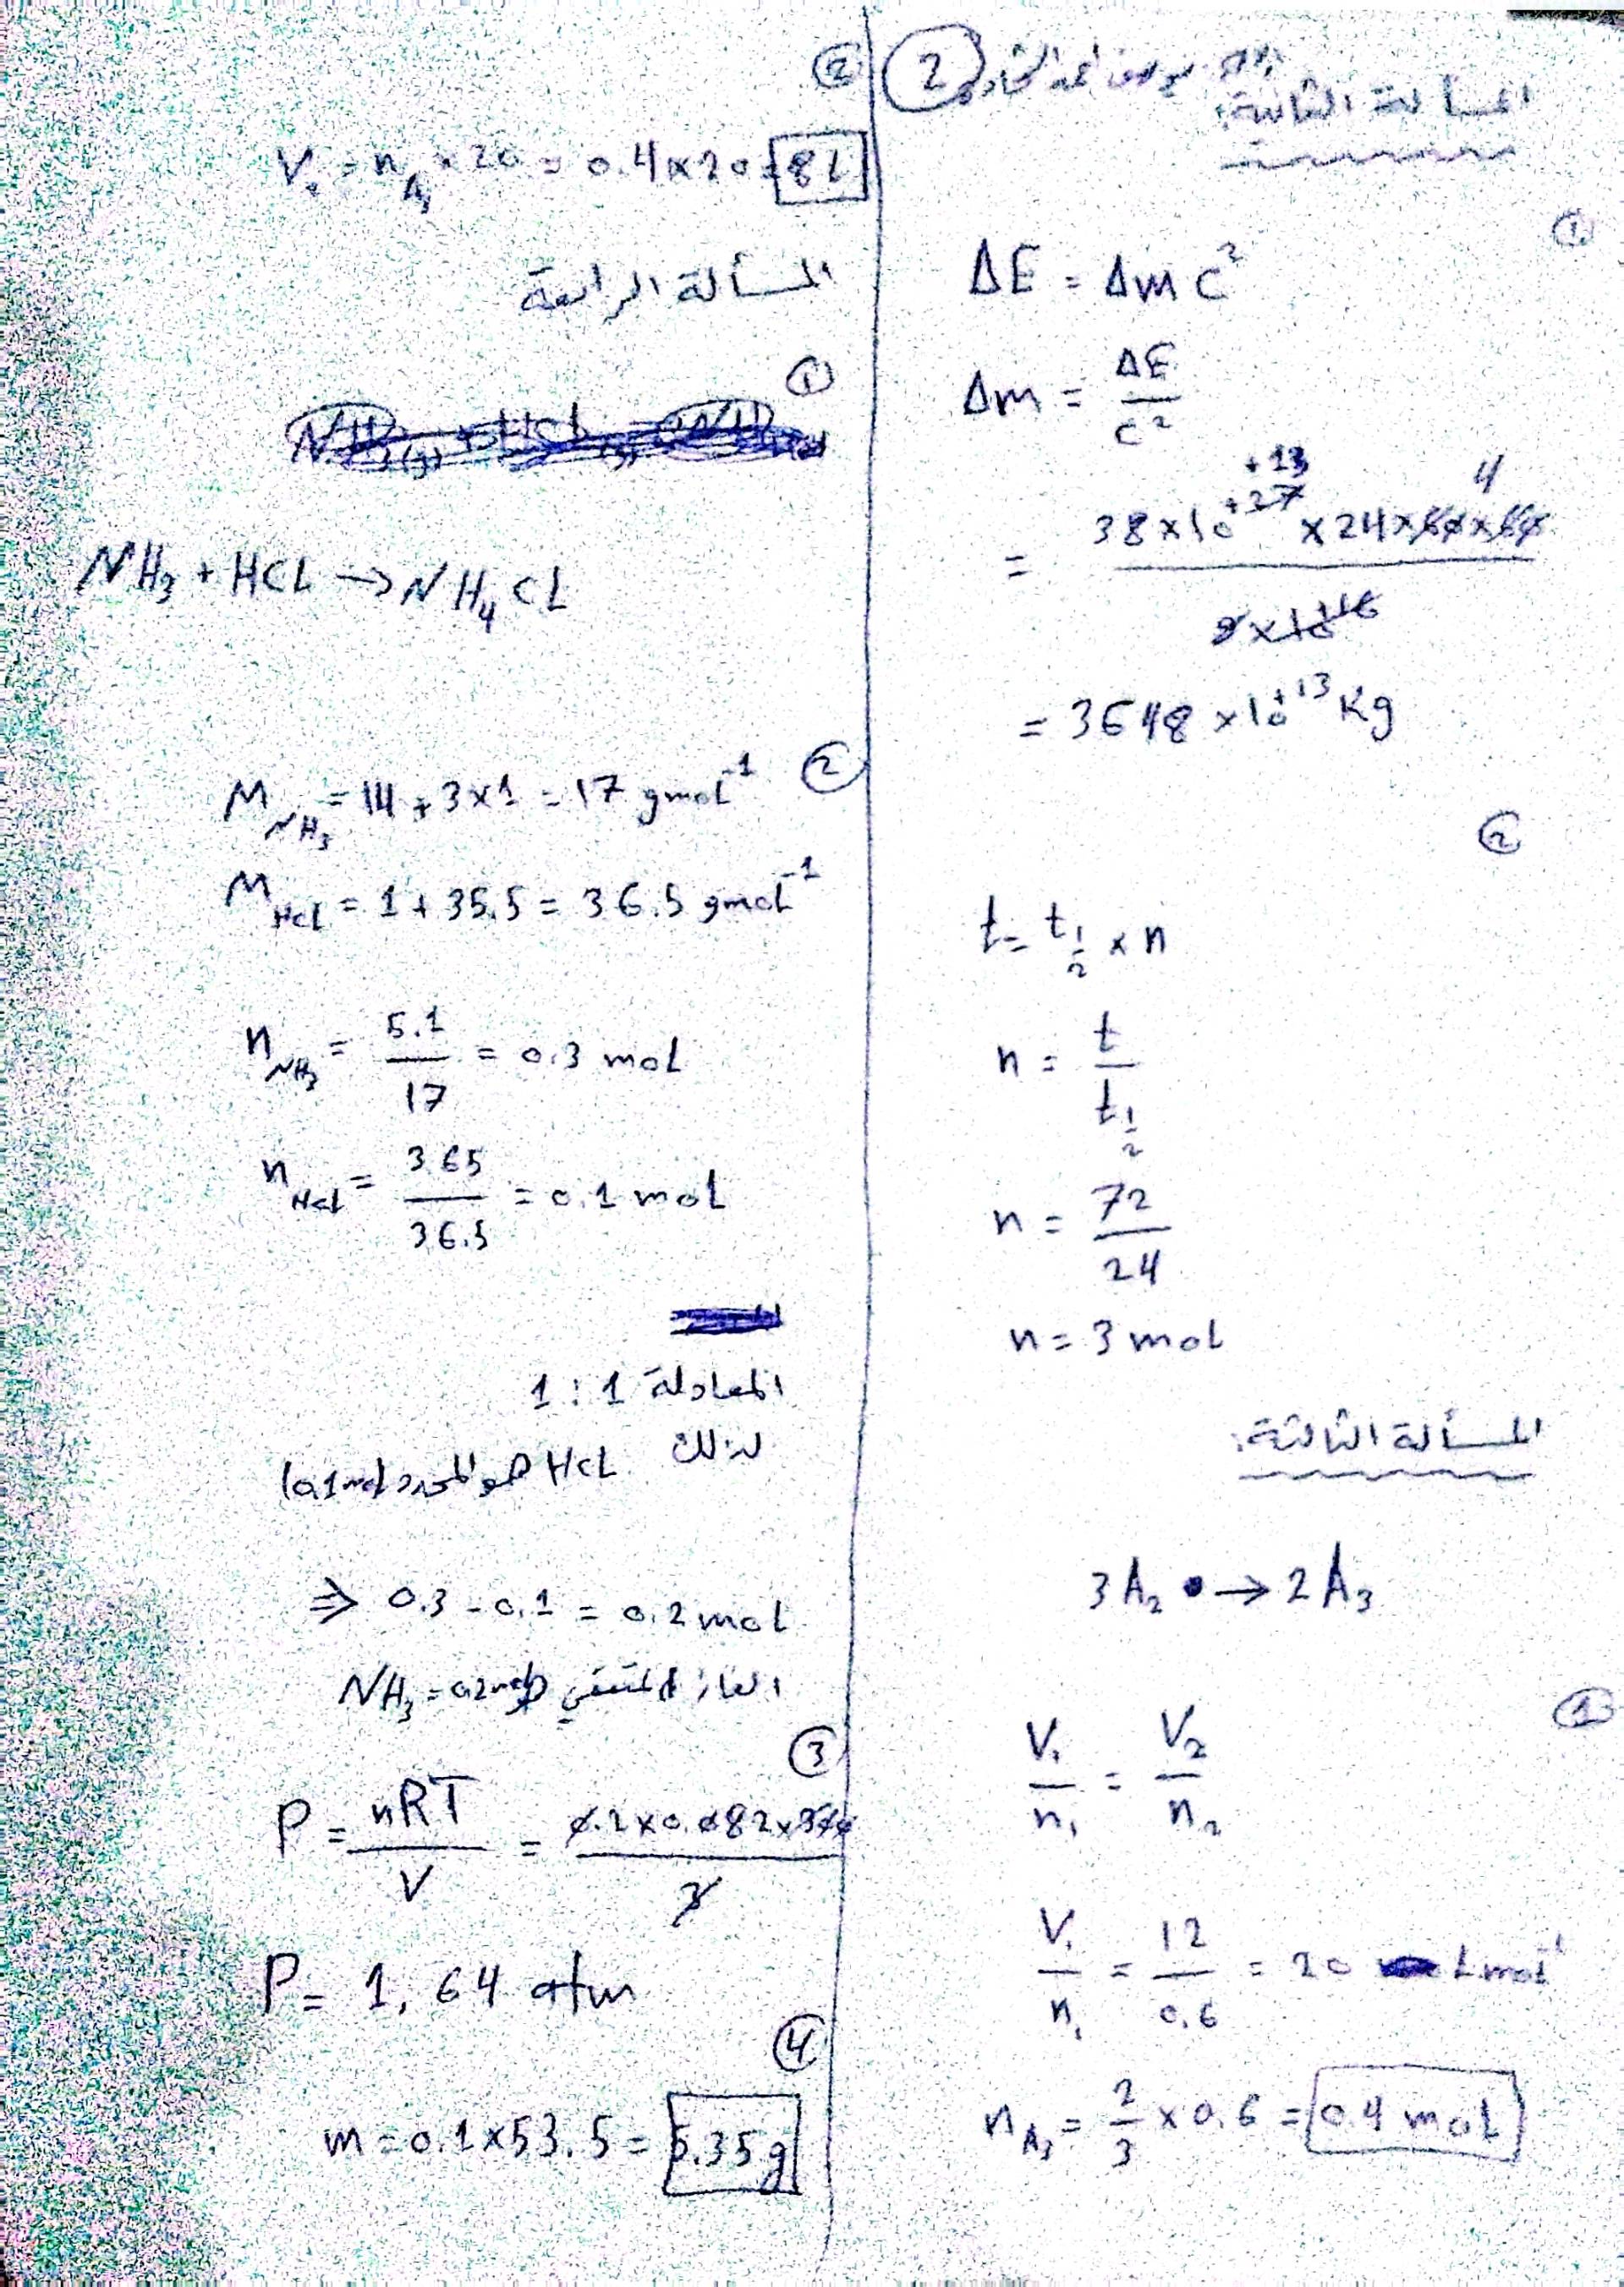 2
المسألة الثانية:
1
ΔE = Δm c²
Δm = ΔE / c²
= 38 × 10^+27 +13 × 24 × 60 × 60 4 / 9 × 10^+16
= 3648 × 10^+13 Kg
2
t = t_1/2 × n
n = t / t_1/2
n = 72 / 24
n = 3 mol
المسألة الثالثة:
3A₂ → 2A₃
1
V₁ / n₁ = V₂ / n₂
V₁ / n₁ = 12 / 0,6 = 20 L mol⁻¹
n_A₃ = 2/3 × 0,6 = 0.4 mol
2
V₂ = n_A₃ × 20 = 0.4 × 20 = 8 L
المسألة الرابعة
1
NH₃ + HCL → NH₄CL
2
M_NH₃ = 14 + 3×1 = 17 gmol⁻¹
M_HCl = 1 + 35,5 = 36.5 gmol⁻¹
n_NH₃ = 5.1 / 17 = 0.3 mol
n_HCl = 3.65 / 36.5 = 0.1 mol
المعادلة 1 : 1
لذلك
HCL هو المحدد (0.1mol
⇒ 0.3 - 0.1 = 0.2 mol
الغاز المتبقي هو NH₃ = 0.2mol
3
P = nRT / V = 0.2 × 0.082 × 300 / 3
P = 1,64 atm
4
m = 0.1 × 53.5 = 5.35 g